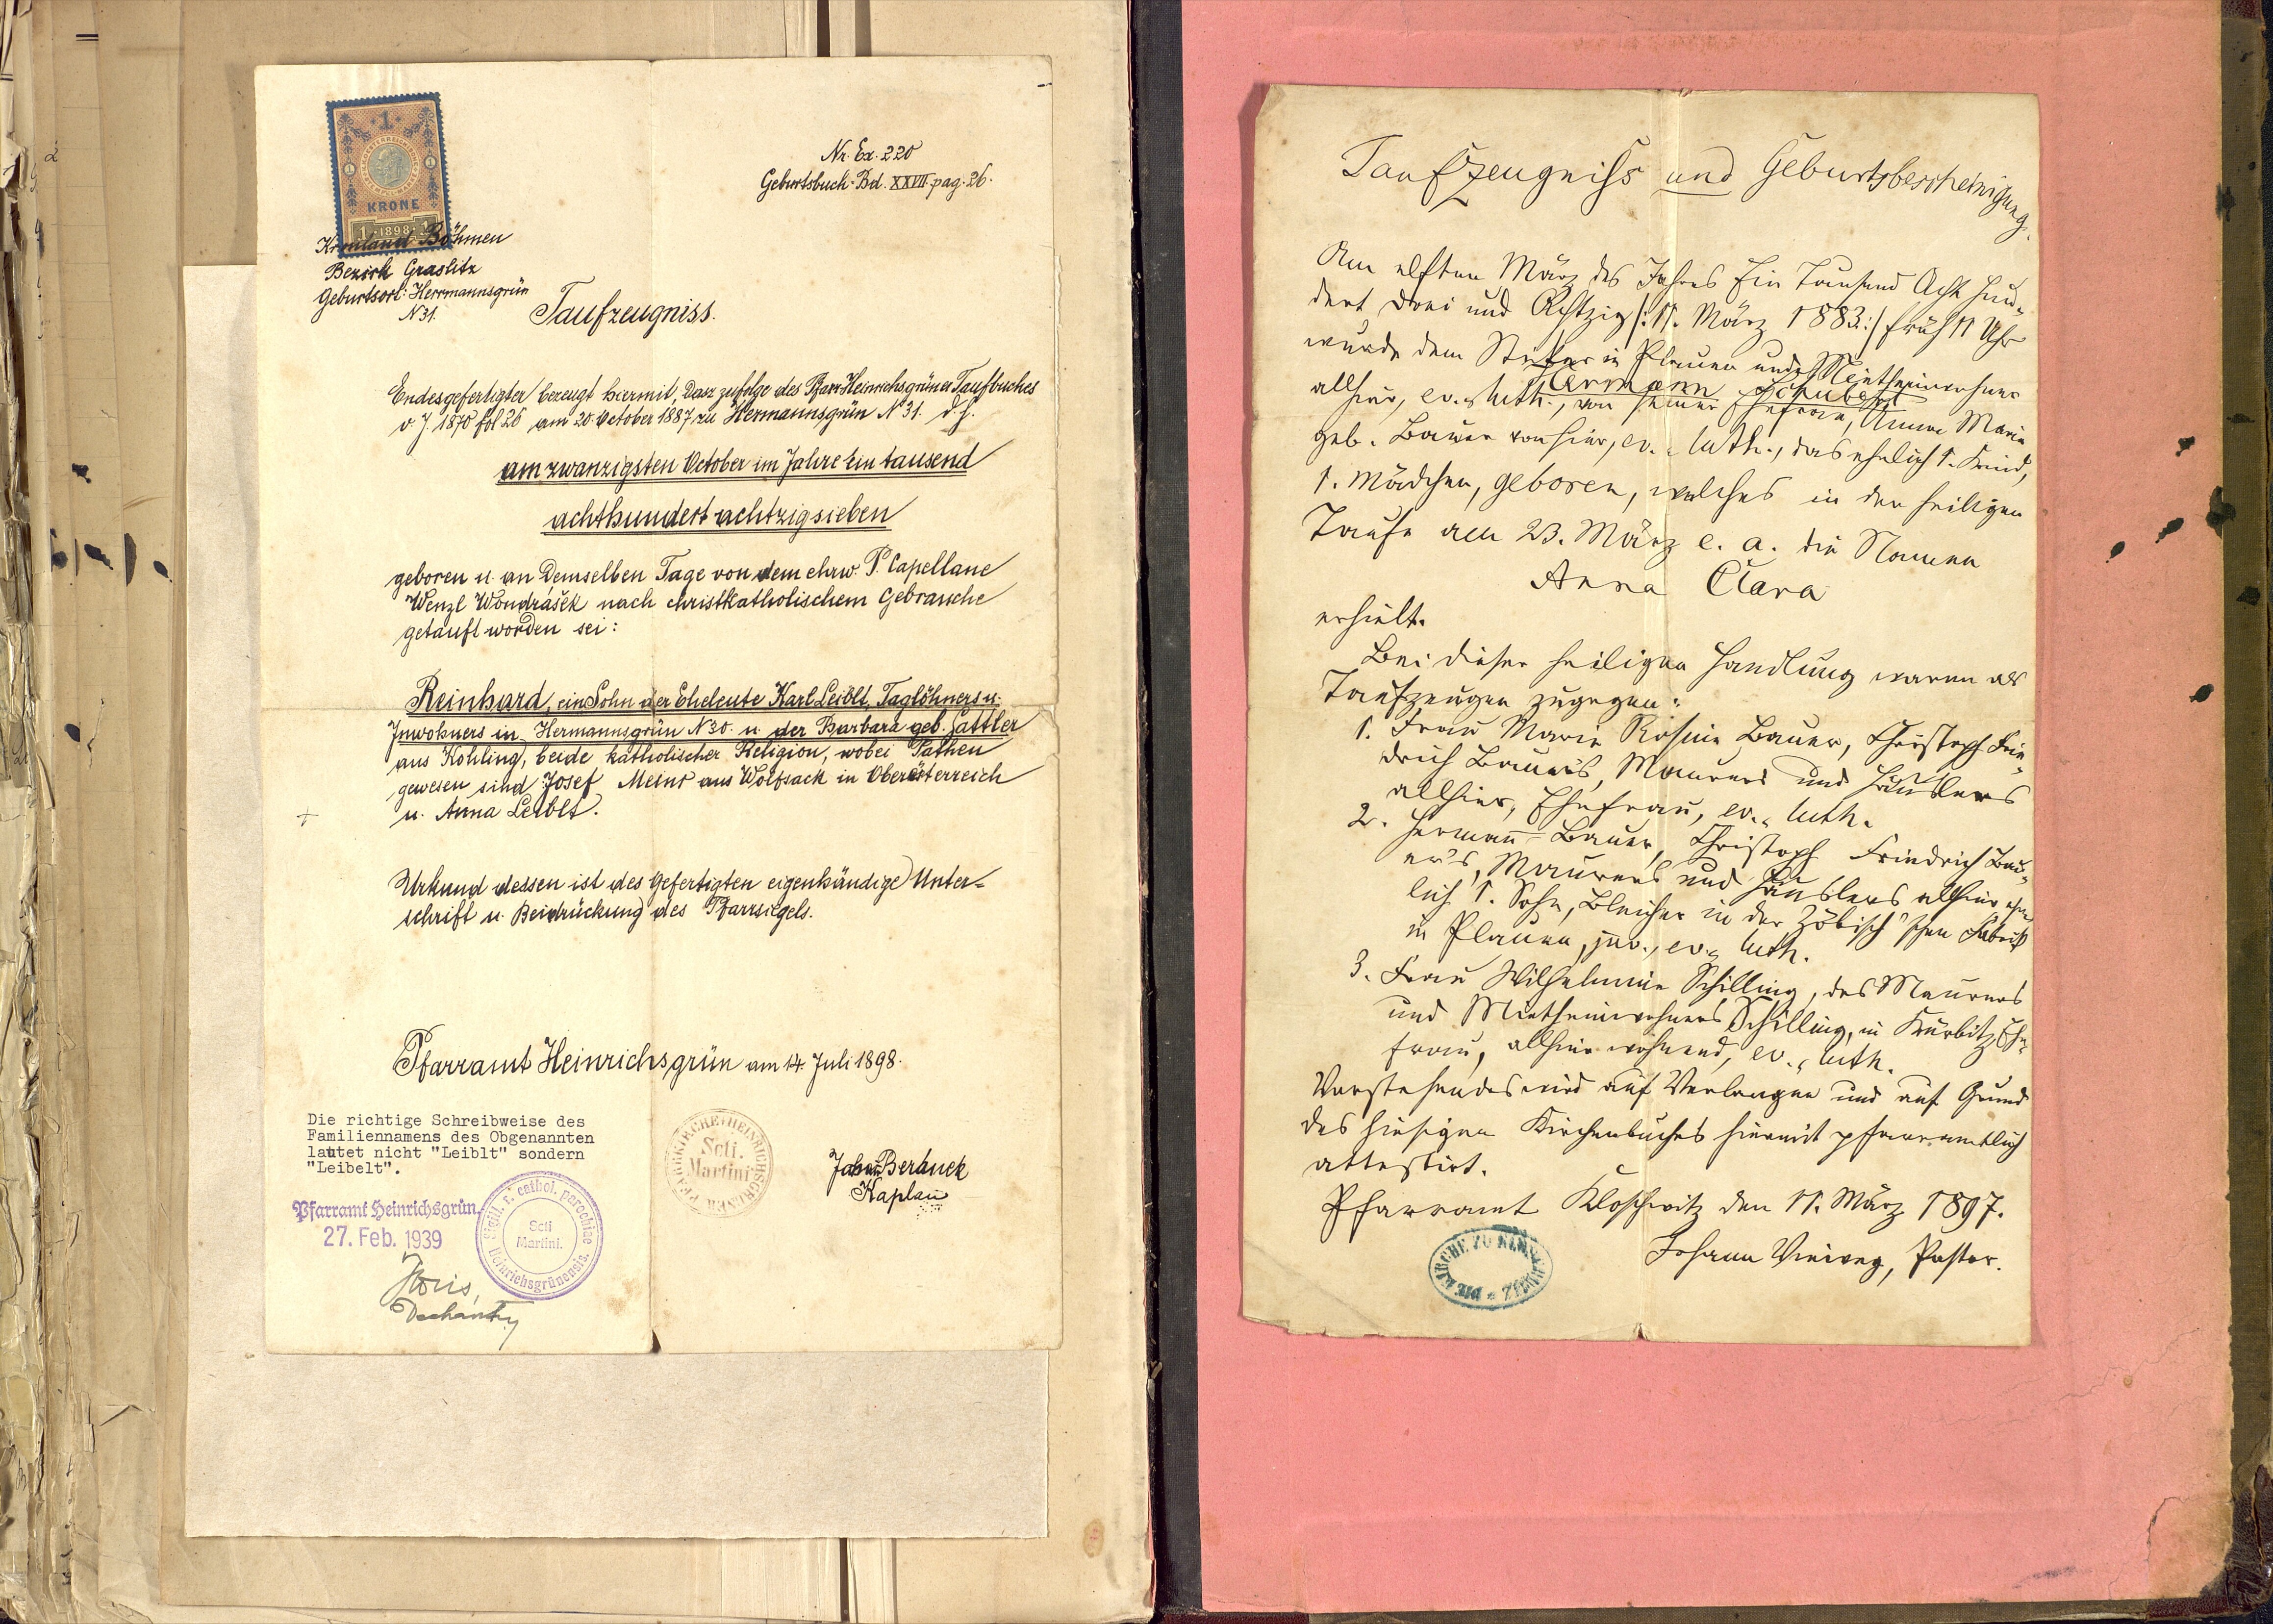 1
KRONE
1 1898 1
Nr. Ex. 220
Geburtsbuch: Bd. XXVII. pag. 26.
Kronland Böhmen
Bezirk Graslitz
Geburtsort: Herrmannsgrün
N 31.
Taufzeugniss.
Endesgefertigter bezeugt hiermit, dasz zufolge des Pfarr-Heinrichsgrüner Taufbuches
v. J. 1870 fol 26 am 20. October 1887 zu Hermannsgrün N° 31. d. h.
am zwanzigsten October im Jahre Ein tausend
achthundert achtzigsieben
geboren u. an Demselben Tage von dem ehrw. P. Capellane
Wenzl Wondrášek nach christkatholischem Gebrauche
getauft worden sei:
Reinhard, ein Sohn der Eheleute Karl Leiblt, Taglöhners u.
Inwohners in Hermannsgrün N 30. u. der Barbara geb. Sattler
aus Kohling, beide katholischer Religion, wobei Pathen
gewesen sind Josef aus Wolfsack in Oberösterreich
u. Anna Leiblt.
Urkund dessen ist des Gefertigten eigenhändige Unter-
schrift u. Beidrückung des Pfarrsiegels.
Pfarramt Heinrichsgrün am 14. Juli 1898.
PFARRKIRCHE HEINRICHSGRÜN
Scti.
Martini
Kaplan
Die richtige Schreibweise des
Familiennamens des Obgenannten
lautet nicht "Leiblt" sondern
"Leibelt".
Pfarramt Heinrichsgrün,
27. Feb. 1939
Sigill. r. cathol. parochiae Heinrichsgrünensis.
Scti
Martini.
Dechant
Taufzeugniss und Geburtsbescheinigung.
Am elften März des Jahres Ein Tausend Acht Hun-
dert Drei und Achtzig /: 11. März 1883 :/ früh 11 Uhr
wurde dem in Plauen und Mietheinwohner
Hermann Schubert
allhier, ev.-luth., von seiner Ehefrau, Anna Marie
geb. Bauer von hier, ev.-luth., das ehelich 1. Kind,
1. Mädchen, geboren, welches in der heiligen
Taufe am 23. März e. a. die Namen
Anna Clara
erhielt.
Bei dieser heiligen Handlung waren als
Taufzeugen zugegen:
1. Frau Marie Rosine Bauer, Christoph Frie-
drich Bauer's, Maurers und Häuslers
allhier, Ehefrau, ev.-luth.
2. Hermann Bauer, Christoph Friedrich Bau-
er's, Maurers und Häuslers allhier ehe-
lich 1. Sohn, Bleicher in der Zöbisch'schen Fabrik
in Plauen, juv., ev.-luth.
3. Frau Wilhelmine Schilling, des Maurers
und Mietheinwohners Schilling, in Kürbitz Ehe-
frau, allhier wohnend, ev.-luth.
Vorstehendes wird auf Verlangen und auf Grund
des hiesigen Kirchenbuches hiermit pfarramtlich
attestirt.
Pfarramt Kloschwitz den 11. März 1897.
Johann Vieweg, Pastor.
DIE KIRCHE ZU KLOSCHWITZ